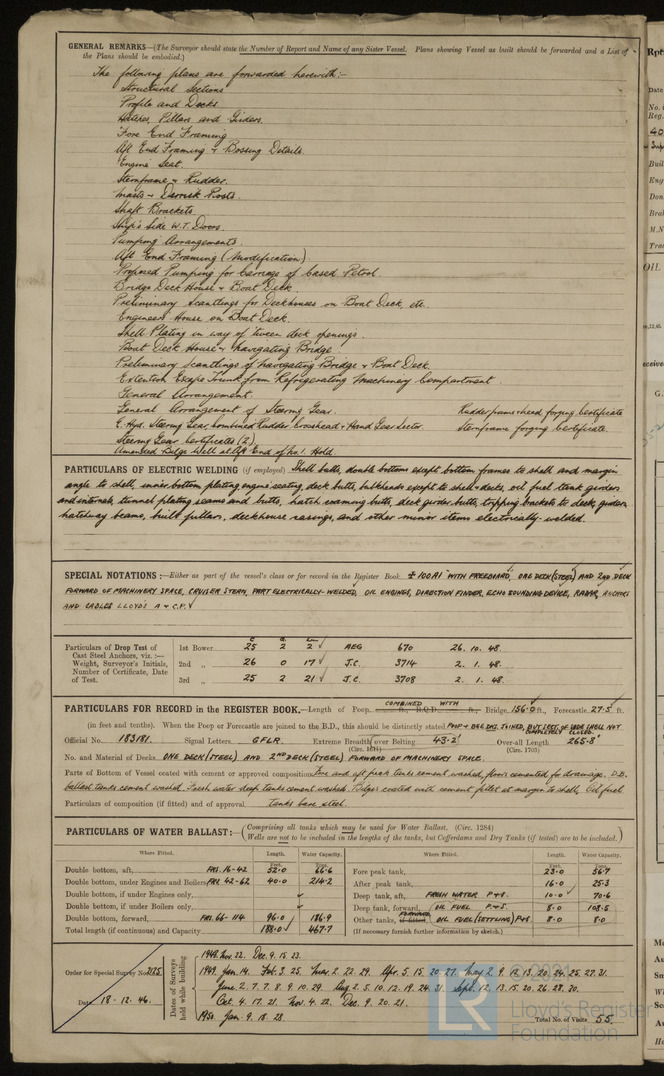 GENERAL REMARKS—(The Surveyor should state the Number of Report and Name of any Sister Vessel. Plans showing Vessel as built should be forwarded and a List of
the Plans should be embodied.)
The following plans are forwarded herewith:-
Structural Sections
Profile and Decks
Hatches, Pillars and Girders.
Fore End Framing
Aft End Framing & Bossing Details.
Engine Seat.
Sternframe & Rudder.
Masts & Derrick Posts.
Shaft Brackets.
Ship's Side W.T. Doors.
Pumping Arrangements.
Aft End Framing (Modification).
Proposed Pumping for Carriage of Cased Petrol.
Bridge Deck House & Boat Deck.
Preliminary Scantlings for Deckhouses on Boat Deck, etc.
Engineers House on Boat Deck.
Shell Plating in way of 'tween deck openings.
Boat Deck House & Navigating Bridge
Preliminary Scantlings of Navigating Bridge & Boat Deck.
Extention Escape Trunk from Refrigerating Machinery Compartment.
General Arrangement.
General Arrangement of Steering Gear. Rudder frame & head forging Certificate
E. Hyd. Steering Gear, Combined Rudder Crosshead & Hand Gear Sector. Sternframe forging Certificate.
Steering Gear Certificates (2).
Amended Bilge Well at Aft End of No. 1. Hold.
PARTICULARS OF ELECTRIC WELDING (if employed) Shell butts, double bottom except bottom frames to shell and margin
angle to shell, inner bottom plating engine seating, deck butts, bulkheads except to shell & decks, oil fuel tank girders
and internals, tunnel plating seams and butts, hatch coaming butts, deck girder butts, tripping brackets to deck, girders
hatchway beams, built pillars, deckhouse casings, and other minor items electrically-welded.
SPECIAL NOTATIONS:—Either as part of the vessel's class or for record in the Register Book. +100A1 "WITH FREEBOARD", ONE DECK (STEEL) AND 2ND DECK
FORWARD OF MACHINERY SPACE, CRUISER STERN, PART ELECTRICALLY-WELDED, OIL ENGINES, DIRECTION FINDER, ECHO SOUNDING DEVICE, RADAR, ANCHORS
AND CABLES LLOYD'S A & C.P.
Particulars of Drop Test of
Cast Steel Anchors, viz. :—
Weight, Surveyor's Initials,
Number of Certificate, Date
of Test.
1st Bower 25 2 2 AEG 670 26. 10. 48.
2nd „ 26 0 17 J.C. 3714 2. 1. 48.
3rd „ 25 2 21 J.C. 3708 2. 1. 48
PARTICULARS FOR RECORD in the REGISTER BOOK.—Length of Poop COMBINED WITH ft., R.Q.D. ft., Bridge 156.0 ft., Forecastle 27.5 ft.
(in feet and tenths). When the Poop or Forecastle are joined to the B.D., this should be distinctly stated POOP & BRIDGE JOINED, BUT 1 SET OF SIDE SHELL NOT COMPLETELY CLOSED.
Official No. 183181. Signal Letters. GFLR. Extreme Breadth over Belting 43.2' (Circ. 1611) Over-all Length 265.8' (Circ. 1703)
No. and Material of Decks ONE DECK (STEEL) AND 2ND DECK (STEEL) FORWARD OF MACHINERY SPACE.
Parts of Bottom of Vessel coated with cement or approved composition Fore and aft peak tanks cement washed, floors cemented for drainage. D.B.
ballast tanks cement washed. Fresh water deep tanks cement washed. Bilges coated with cement fillet at margin to shell, Oil fuel
Particulars of composition (if fitted) and of approval tanks bare steel.
PARTICULARS OF WATER BALLAST:—(Comprising all tanks which may be used for Water Ballast. (Circ. 1284)
Wells are not to be included in the lengths of the tanks, but Cofferdams and Dry Tanks (if tested) are to be included.)
Where Fitted. Length. Water Capacity. Where Fitted. Length. Water Capacity.
Double bottom, aft, FRS. 16-42 52.0 66.6 Fore peak tank, 23.0 56.7
Double bottom, under Engines and Boilers, FRS. 42-62 40.0 214.2 After peak tank, 16.0 25.3
Double bottom, if under Engines only, Deep tank, aft, FRESH WATER P&S. 10.0 70.6
Double bottom, if under Boilers only, Deep tank, forward, OIL FUEL P&S. 8.0 108.5
Double bottom, forward, FRS. 66-114 96.0 186.9 Other tanks, if fitted, FORWARD OIL FUEL (SETTLING) P&S 8.0 8.0
Total length (if continuous) and Capacity 188.0 467.7 (If necessary furnish further information by sketch.)
Order for Special Survey No. 2125
Date 18-12-46.
Dates of Surveys held while building
1948. Nov. 22. Dec. 9. 15. 23.
1949. Jan. 14. Feb. 3. 25. Mar. 2. 22. 29. Apr. 5. 15. 20. 27. May 2. 9. 12. 13. 20. 24. 25. 27. 31.
June 2. 7. 7. 8. 9. 10. 29. Aug. 2. 5. 10. 12. 19. 24. 31. Sept. 12. 13. 15. 20. 26. 28. 30.
Oct. 4. 17. 21. Nov. 4. 22. Dec. 9. 20. 21.
1950. Jan. 9. 18. 28.
Total No. of Visits 55.
© 2021
LR
Lloyd's Register
Foundation